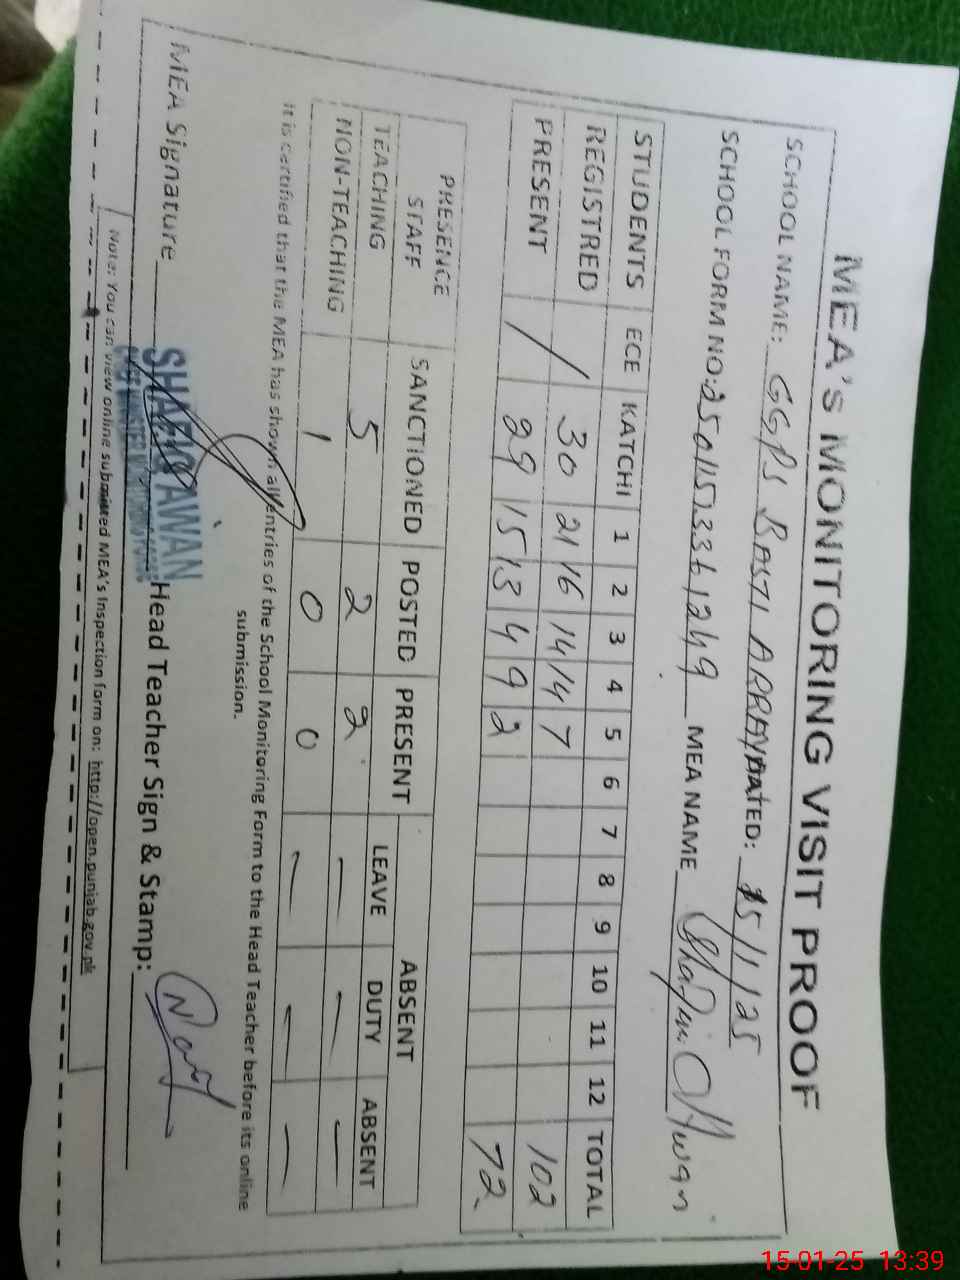 MEA'S MONITORING VISIT PROOF
SCHOOL NAME: GGPS BASTI DATED: 15/1/25
SCHOOL FORM NO: MEA NAME Awan
STUDENTS ECE KATCHI 1 2 3 4 5 6 7 8 9 10 11 12 TOTAL
REGISTRED / 30 21 16 14 14 7 102
PRESENT / 29 15 13 4 9 2 72
PRESENCE STAFF SANCTIONED POSTED PRESENT ABSENT
LEAVE DUTY ABSENT
TEACHING 5 2 2 – – –
NON-TEACHING 1 0 0 – – –
It is certified that the MEA has shown all entries of the School Monitoring Form to the Head Teacher before its online
submission.
MEA Signature SHAFIQ AWAN Head Teacher Sign & Stamp:
Note: You can view online submitted MEA's Inspection form on: http://open.punjab.gov.pk
15-01-25 13:39